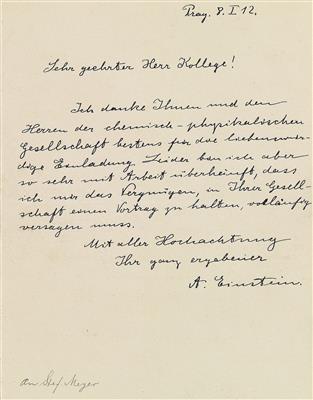 Prag. 8. I 12.
Sehr geehrter Herr Kollege!
Ich danke Ihnen und den
Herren der chemisch-physikalischen
Gesellschaft bestens für die liebenswür-
dige Einladung. Leider bin ich aber
so sehr mit Arbeit überhäuft, dass
ich mir das Vergnügen, in Ihrer Gesell-
schaft einen Vortrag zu halten, vorläufig
versagen muss.
Mit aller Hochachtung
Ihr ganz ergebener
A. Einstein.
an Stef. Meyer